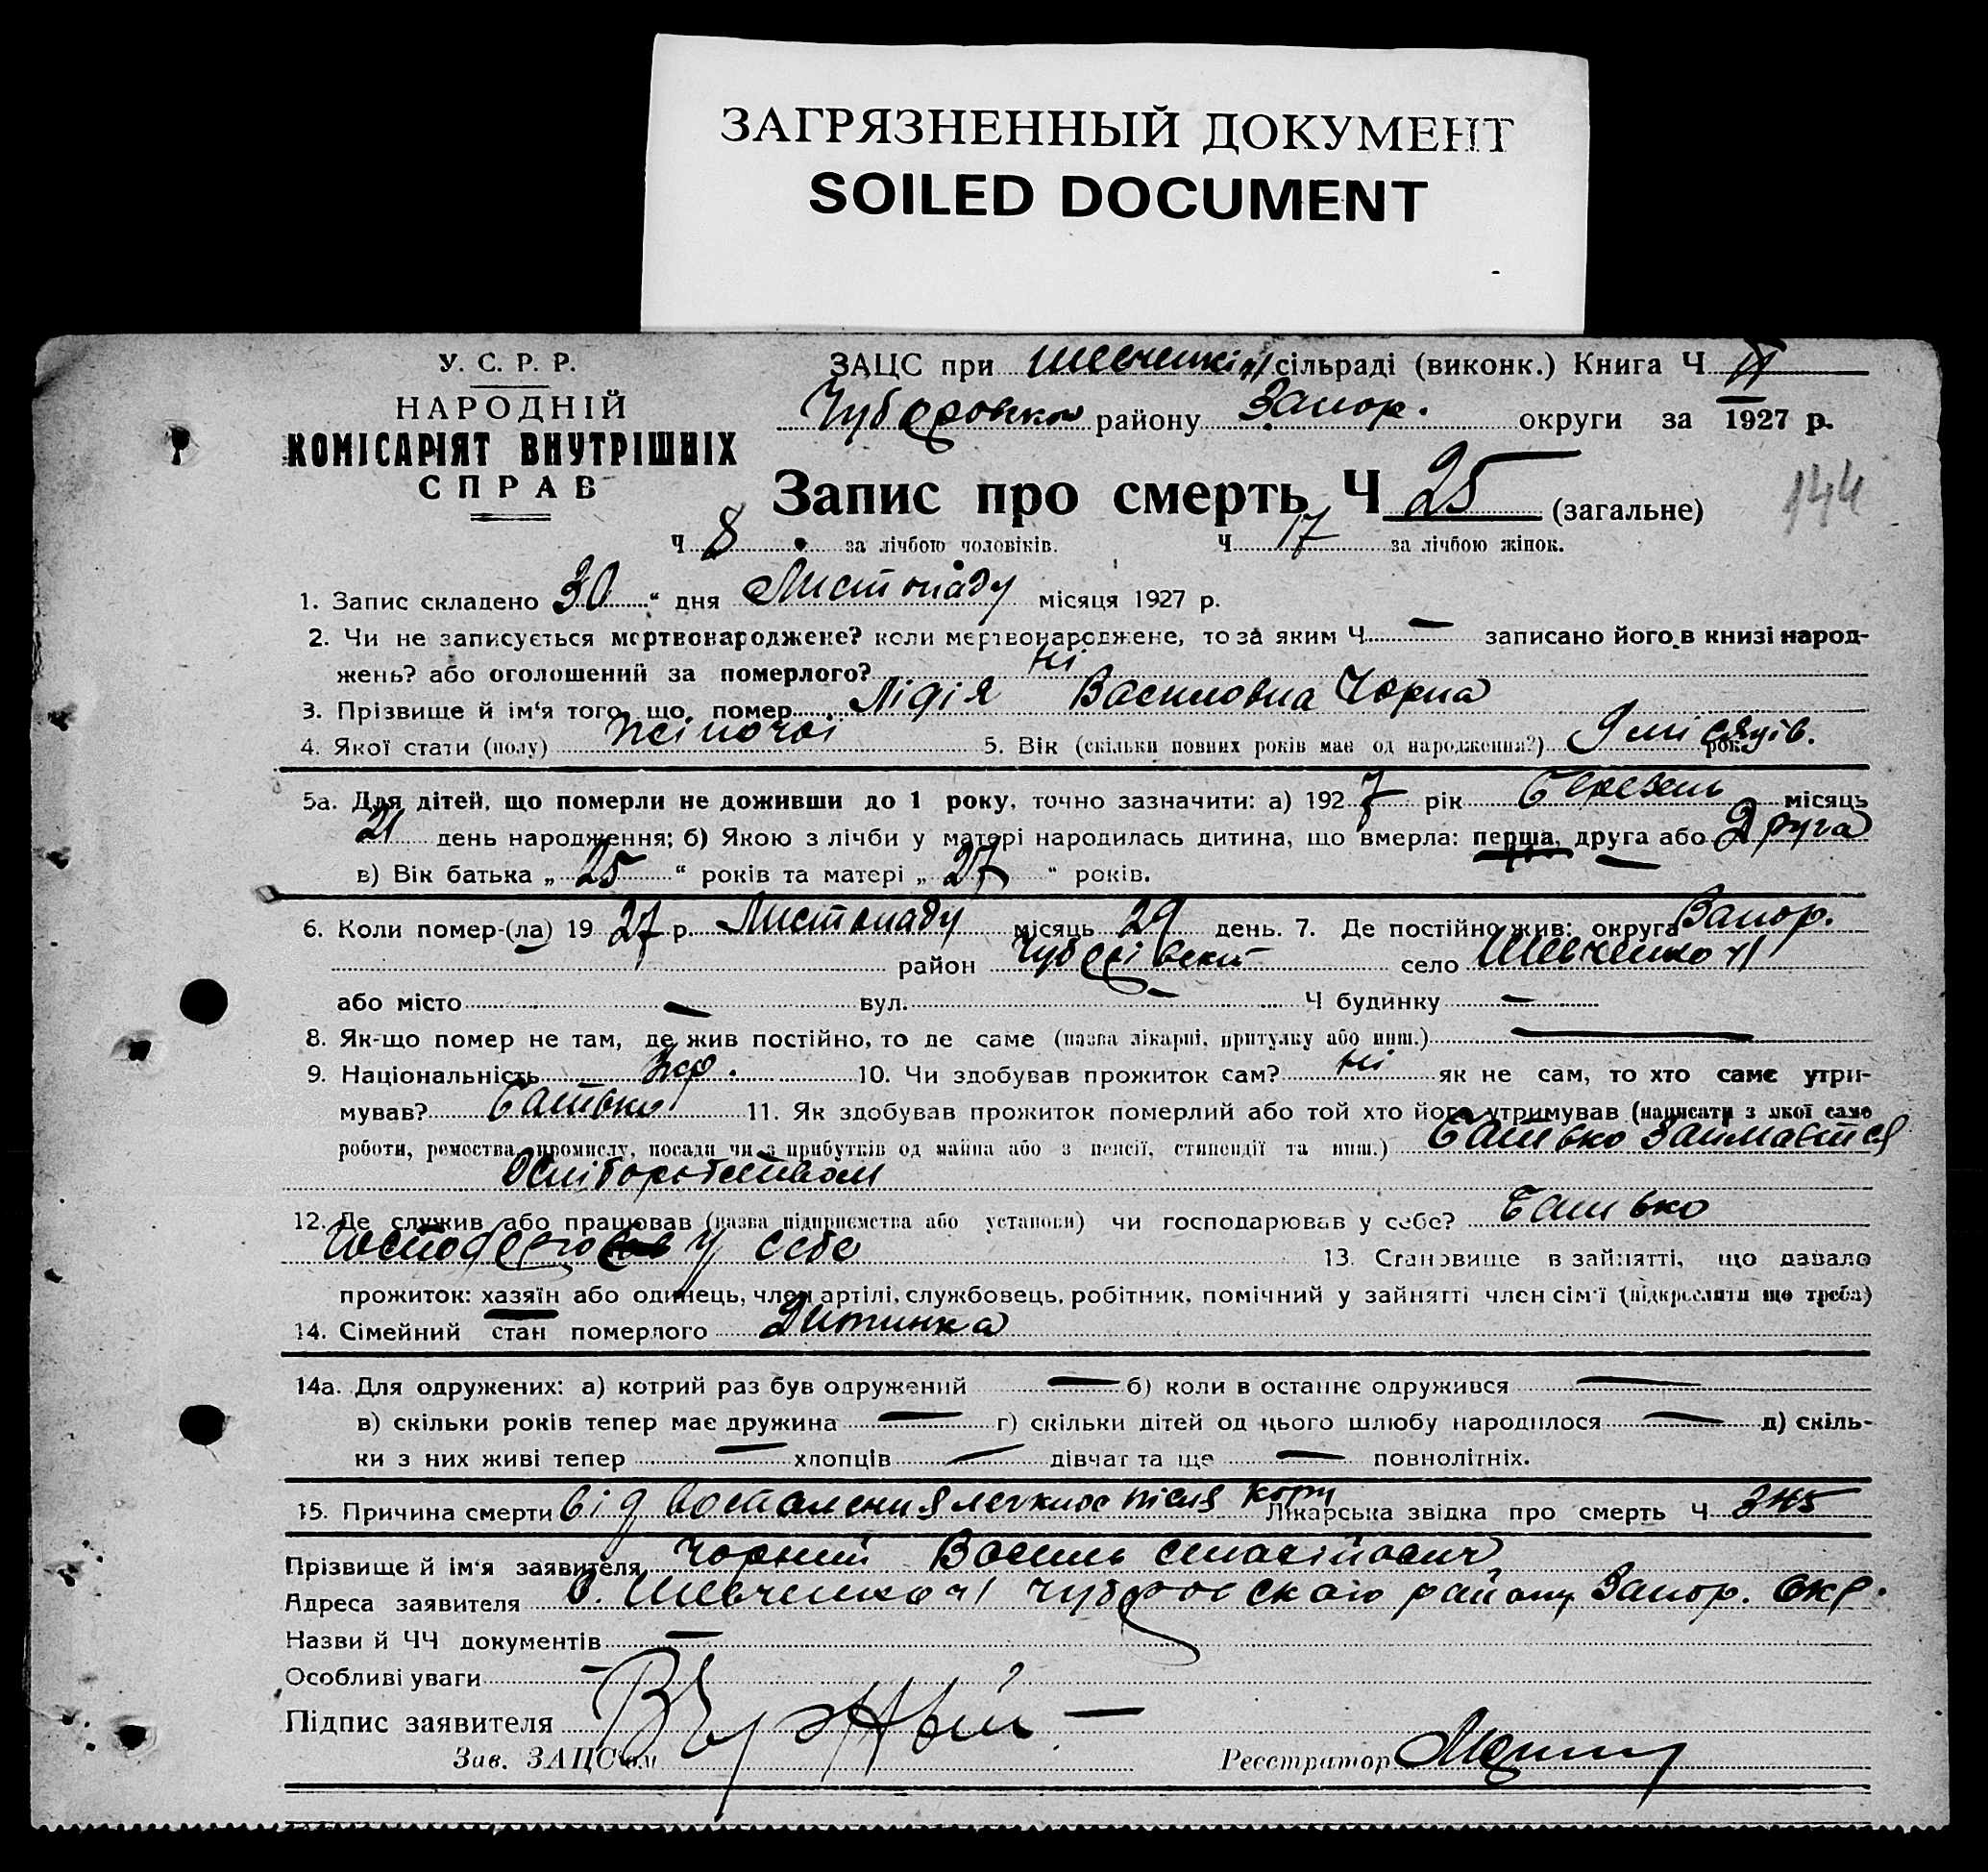 ЗАГРЯЗНЕННЫЙ ДОКУМЕНТ
SOILED DOCUMENT
У. С. Р. Р.
НАРОДНІЙ
КОМІСАРІЯТ ВНУТРІШНІХ
СПРАВ
ЗАЦС при сільраді (виконк.) Книга Ч II
району Запор. округи за 1927 р.
Запис про смерть Ч 25 (загальне)
144
Ч 8 за лічбою чоловіків. Ч 17 за лічбою жінок.
1. Запис складено 30 “ дня Листопаду місяця 1927 р.
2. Чи не записується мертвонароджене? коли мертвонароджене, то за яким Ч — записано його в книзі народ-
жень? або оголошений за померлого? ні
3. Прізвище й ім‘я того, що помер Лідія Василовна Чорна
4. Якої стати (полу) жіночоі 5. Вік (скільки повних років має од народження?) 9 місяців. рок.
5а. Для дітей, що померли не доживши до 1 року, точно зазначити: а) 1927 рік Березень місяць
21 день народження; б) Якою з лічби у матері народилась дитина, що вмерла: перша, друга або Друга
в) Вік батька „ 25 “ років та матері „ 27 “ років.
6. Коли помер-(ла) 1927 р. Листопаду місяць 29 день. 7. Де постійно жив: округа Запор.
район село Шевченко
або місто — вул. — Ч будинку —
8. Як-що помер не там, де жив постійно, то де саме (назва лікарні, притулку або инш.) —
9. Національність Укр. 10. Чи здобував прожиток сам? ні як не сам, то хто саме утри-
мував? батько 11. Як здобував прожиток померлий або той хто його утримував (написати з якої саме
роботи, ремества, промислу, посади чи з прибутків од майна або з пенсії, стипендії та инш.) батько займается
хліборобством
12. Де служив або працював (назва підприємства або установи) чи господарював у себе? батько
у себе 13. Становище в зайнятті, що давало
прожиток: хазяїн або одинець, член артілі, службовець, робітник, помічний у зайнятті член сім‘ї (підкреслити що треба)
14. Сімейний стан померлого Дитинка
14а. Для одружених: а) котрий раз був одружений — б) коли в останнє одружився —
в) скільки років тепер має дружина — г) скільки дітей од цього шлюбу народилося — д) скіль-
ки з них живі тепер — хлопців — дівчат та ще — повнолітніх.
15. Причина смерти від воспаления легких після кори Лікарська звідка про смерть Ч 345
Прізвище й ім‘я заявителя Чорний Василь
Адреса заявителя с. Шевченко району Запор. окр.
Назви й ЧЧ документів —
Особливі уваги —
Підпис заявителя
Зав. ЗАЦС‘ом Реєстратор